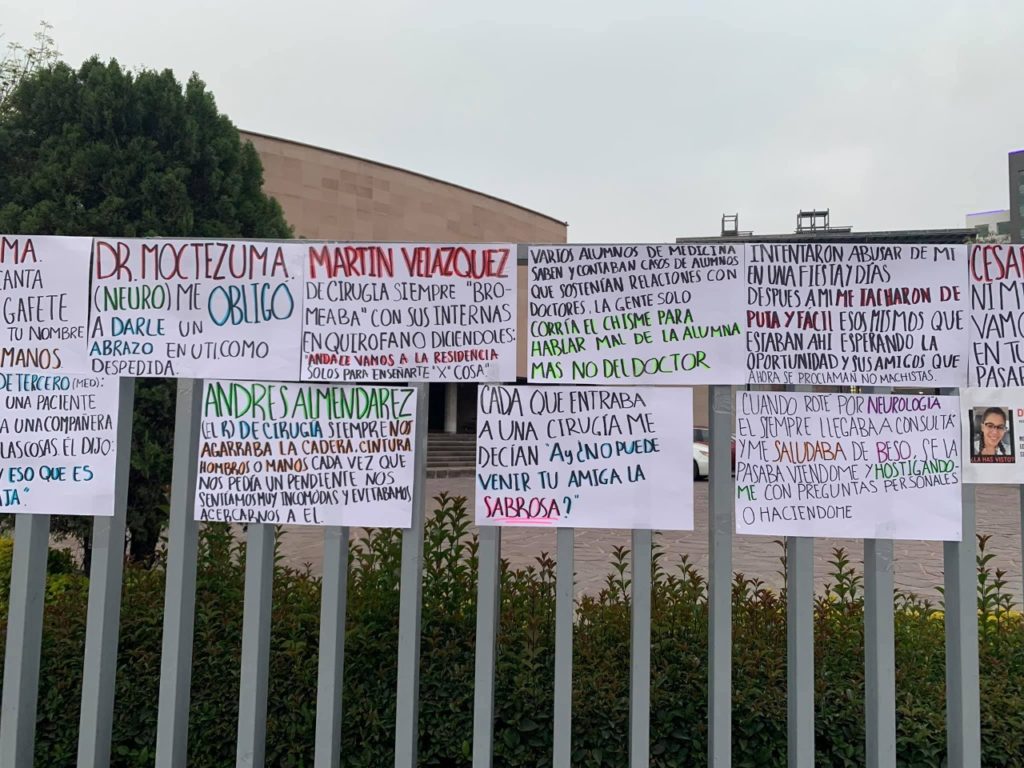 MA.
CANTA
GAFETE
TU NOMBRE
MANOS
DR. MOCTEZUMA.
(NEURO) ME OBLIGÓ
A DARLE UN
ABRAZO EN UTI COMO
DESPEDIDA.
MARTIN VELAZQUEZ
DE CIRUGÍA SIEMPRE "BRO-
MEABA" CON SUS INTERNAS
EN QUIROFANO DICIENDOLES:
"ANDALE VAMOS A LA RESIDENCIA
SOLOS PARA ENSEÑARTE "X" COSA"
VARIOS ALUMNOS DE MEDICINA
SABEN Y CONTABAN CASOS DE ALUMNOS
QUE SOSTENÍAN RELACIONES CON
DOCTORES. LA GENTE SOLO
CORRÍA EL CHISME PARA
HABLAR MAL DE LA ALUMNA
MAS NO DEL DOCTOR
INTENTARON ABUSAR DE MI
EN UNA FIESTA Y DÍAS
DESPUES A MI ME TACHARON DE
PUTA Y FACIL ESOS MISMOS QUE
ESTABAN AHÍ ESPERANDO LA
OPORTUNIDAD Y SUS AMIGOS QUE
AHORA SE PROCLAMAN NO MACHISTAS.
CESAR
NI MI
VAMO
EN TU
PASAR
DE TERCERO (MED):
UNA PACIENTE
A UNA COMPAÑERA
LAS COSAS ÉL DIJO:
Y ESO QUE ES
TA."
ANDRES ALMENDAREZ
(EL R) DE CIRUGÍA SIEMPRE NOS
AGARRABA LA CADERA, CINTURA
HOMBROS O MANOS CADA VEZ QUE
NOS PEDÍA UN PENDIENTE NOS
SENTIAMOS MUY INCOMODAS Y EVITABAMOS
ACERCARNOS A EL.
CADA QUE ENTRABA
A UNA CIRUGÍA ME
DECÍAN "Ay ¿NO PUEDE
VENIR TU AMIGA LA
SABROSA?"
CUANDO ROTE POR NEUROLOGIA
EL SIEMPRE LLEGABA A CONSULTA
Y ME SALUDABA DE BESO, SE LA
PASABA VIENDOME Y HOSTIGANDO-
ME CON PREGUNTAS PERSONALES
O HACIENDOME
¿LA HAS VISTO?